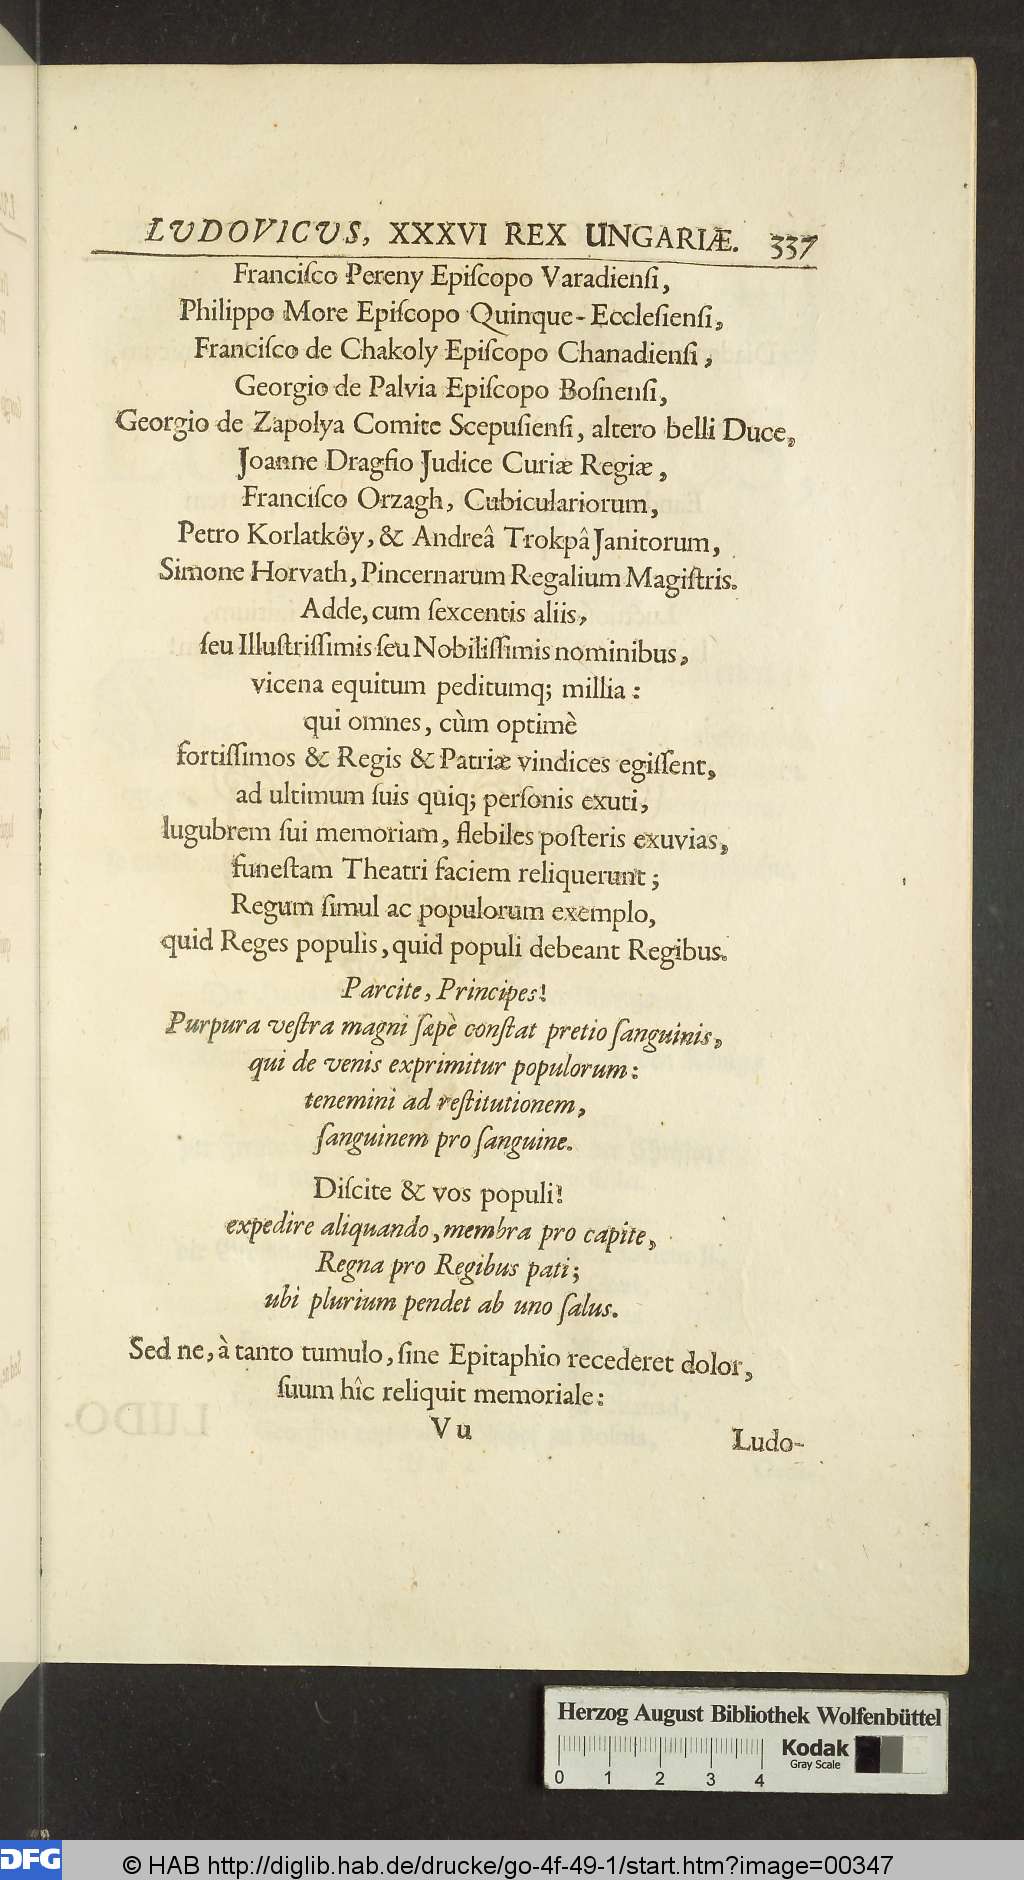 LVDOVICVS, XXXVI REX UNGARIÆ. 337
Franciſco Pereny Epiſcopo Varadienſi,
Philippo More Epiſcopo Quinque-Eccleſienſi,
Franciſco de Chakoly Epiſcopo Chanadienſi,
Georgio de Palvia Epiſcopo Boſnenſi,
Georgio de Zapolya Comite Scepuſienſi, altero belli Duce,
Joanne Dragfio Judice Curiæ Regiæ,
Franciſco Orzagh, Cubiculariorum,
Petro Korlatköy, & Andreâ Trokpâ Janitorum,
Simone Horvath, Pincernarum Regalium Magiſtris.
Adde, cum ſexcentis aliis,
ſeu Illuſtriſſimis ſeu Nobiliſſimis nominibus,
vicena equitum peditumq; millia:
qui omnes, cùm optimè
fortiſſimos & Regis & Patriæ vindices egiſſent,
ad ultimum ſuis quiq; perſonis exuti,
lugubrem ſui memoriam, flebiles poſteris exuvias,
funeſtam Theatri faciem reliquerunt;
Regum ſimul ac populorum exemplo,
quid Reges populis, quid populi debeant Regibus.
Parcite, Principes!
Purpura veſtra magni ſæpè conſtat pretio ſanguinis,
qui de venis exprimitur populorum:
tenemini ad reſtitutionem,
ſanguinem pro ſanguine.
Diſcite & vos populi!
expedire aliquando, membra pro capite,
Regna pro Regibus pati;
ubi plurium pendet ab uno ſalus.
Sed ne, à tanto tumulo, ſine Epitaphio recederet dolor,
ſuum hîc reliquit memoriale:
V u
Ludo-
Herzog August Bibliothek Wolfenbüttel
Kodak
Gray Scale
0 1 2 3 4
DFG
© HAB http://diglib.hab.de/drucke/go-4f-49-1/start.htm?image=00347